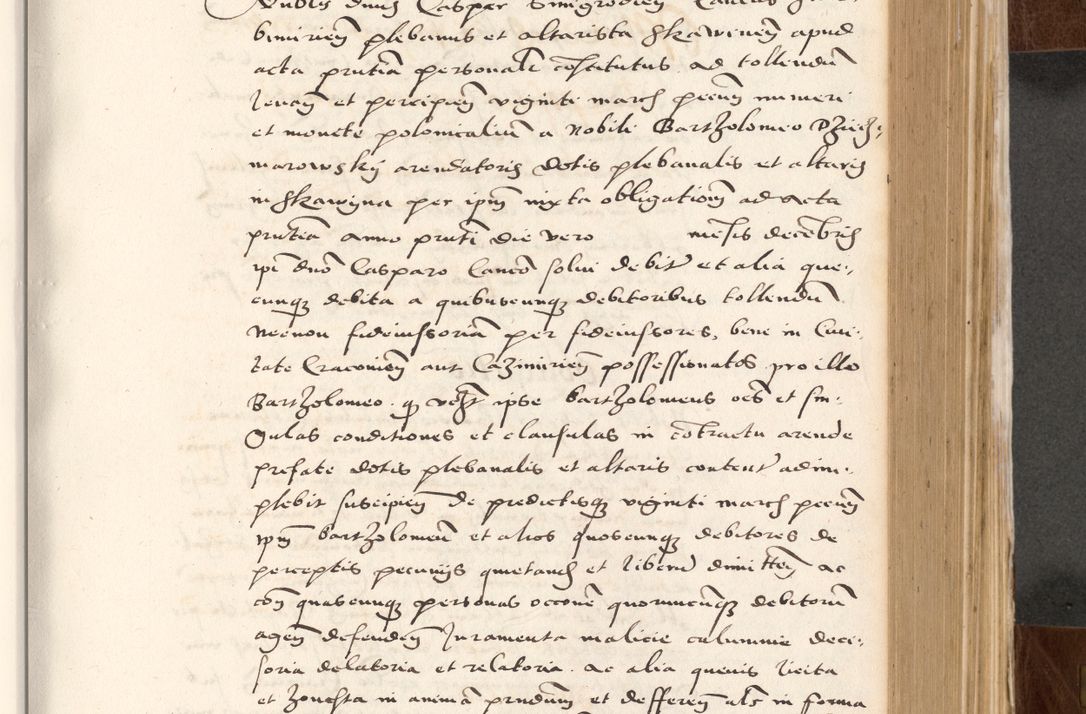 Nobilis dnus Caspar Smigrodien
bimirien plebanus et altarista Skawinen apud
acta pntia personalr constitutus ad tollendu
levan et percipien viginti march pecun numeri
et monete polonicaliu a Nobili Bartholomeo Dziech:
marowsky arendatoris dotis plebanalis et altaris
in Skawyna per ipm iuxta obligation ad acta
pntia anno pnti die vero mensis decebris
ipi dno Casparo Canco solui debit et alia que,
cunq debita a quibuscunq debitoribus tollendu
Necnon fideiussoria per fideiussores, bene in Ciui,
tate Cracouien aut Cazimirien possessionatos pro illo
Bartholomeo q ipse bartholomeus oes et sin,
gulas conditiones et clausulas in cotractu arende
prefate dotis plebanalis et altaris content adim,
plebit suscipien de predictisq viginti march pecun
ipm bartholomeu et alios quoscunq debitores de
perceptis pecunys quietand et liberu dimitten ac
con quascunq personas occone quorumcunq debitoru
agen defenden Juramenta malicie calumnie deci,
soria delatoria et relatoria ac alia queuis licita
et honesta in anima prndum et defferen als in forma